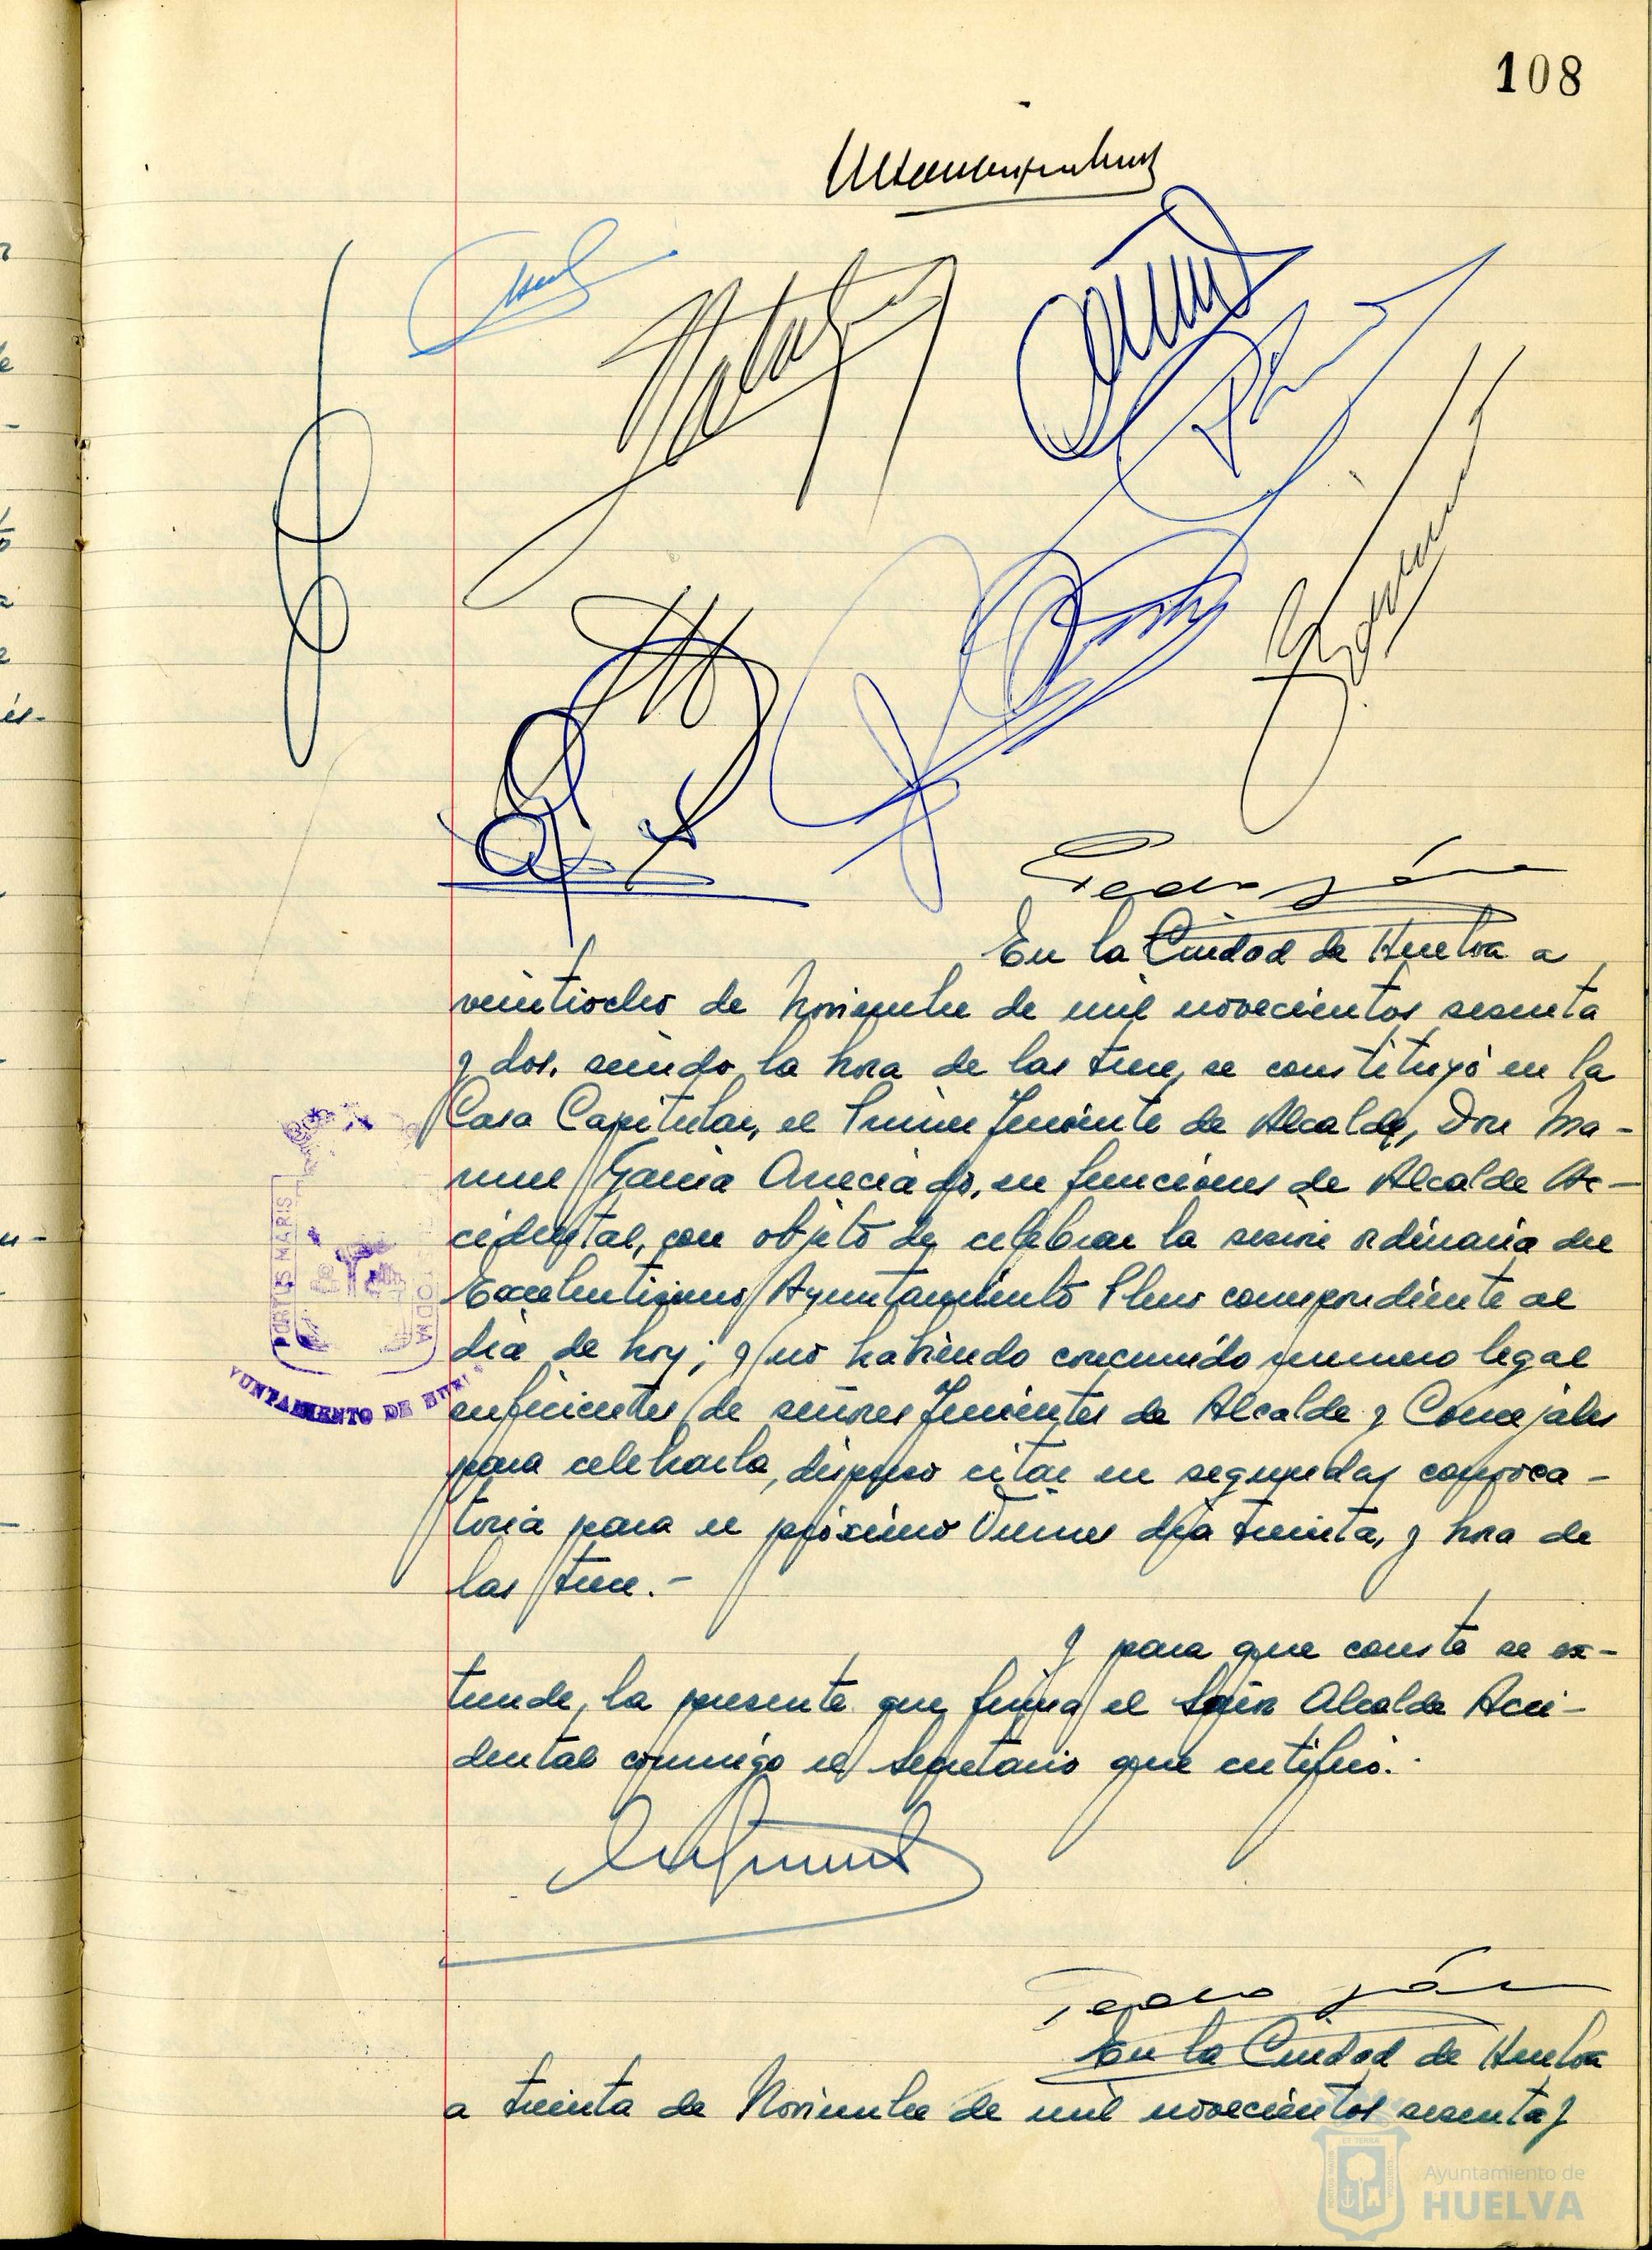 108
Pedro
En la Ciudad de Huelva a
veintiocho de Noviembre de mil novecientos sesenta
y dos, siendo la hora de las trece, se constituyó en la
Casa Capitular, el Primer Teniente de Alcalde, Don Ma-
nuel Garcia en funciones de Alcalde Ac-
cidental, con objeto de celebrar la sesion ordinaria del
Excelentisimo Ayuntamiento Pleno correspondiente al
dia de hoy; y no habiendo concurrido numero legal
suficientes de señores Tenientes de Alcalde y Concejales
para celebrarla, dispuso citar en segunda convoca-
toria para el próximo Viernes dia treinta, y hora de
las trece.-
Y para que conste se ex-
tiende, la presente que firma el Señor Alcalde Acci-
dental conmigo el Secretario que certifico.-
Pedro
En la Ciudad de Huelva
a treinta de Noviembre de mil novecientos sesenta y
PORTUS MARIS
AYUNTAMIENTO DE HUELVA
Ayuntamiento de
HUELVA